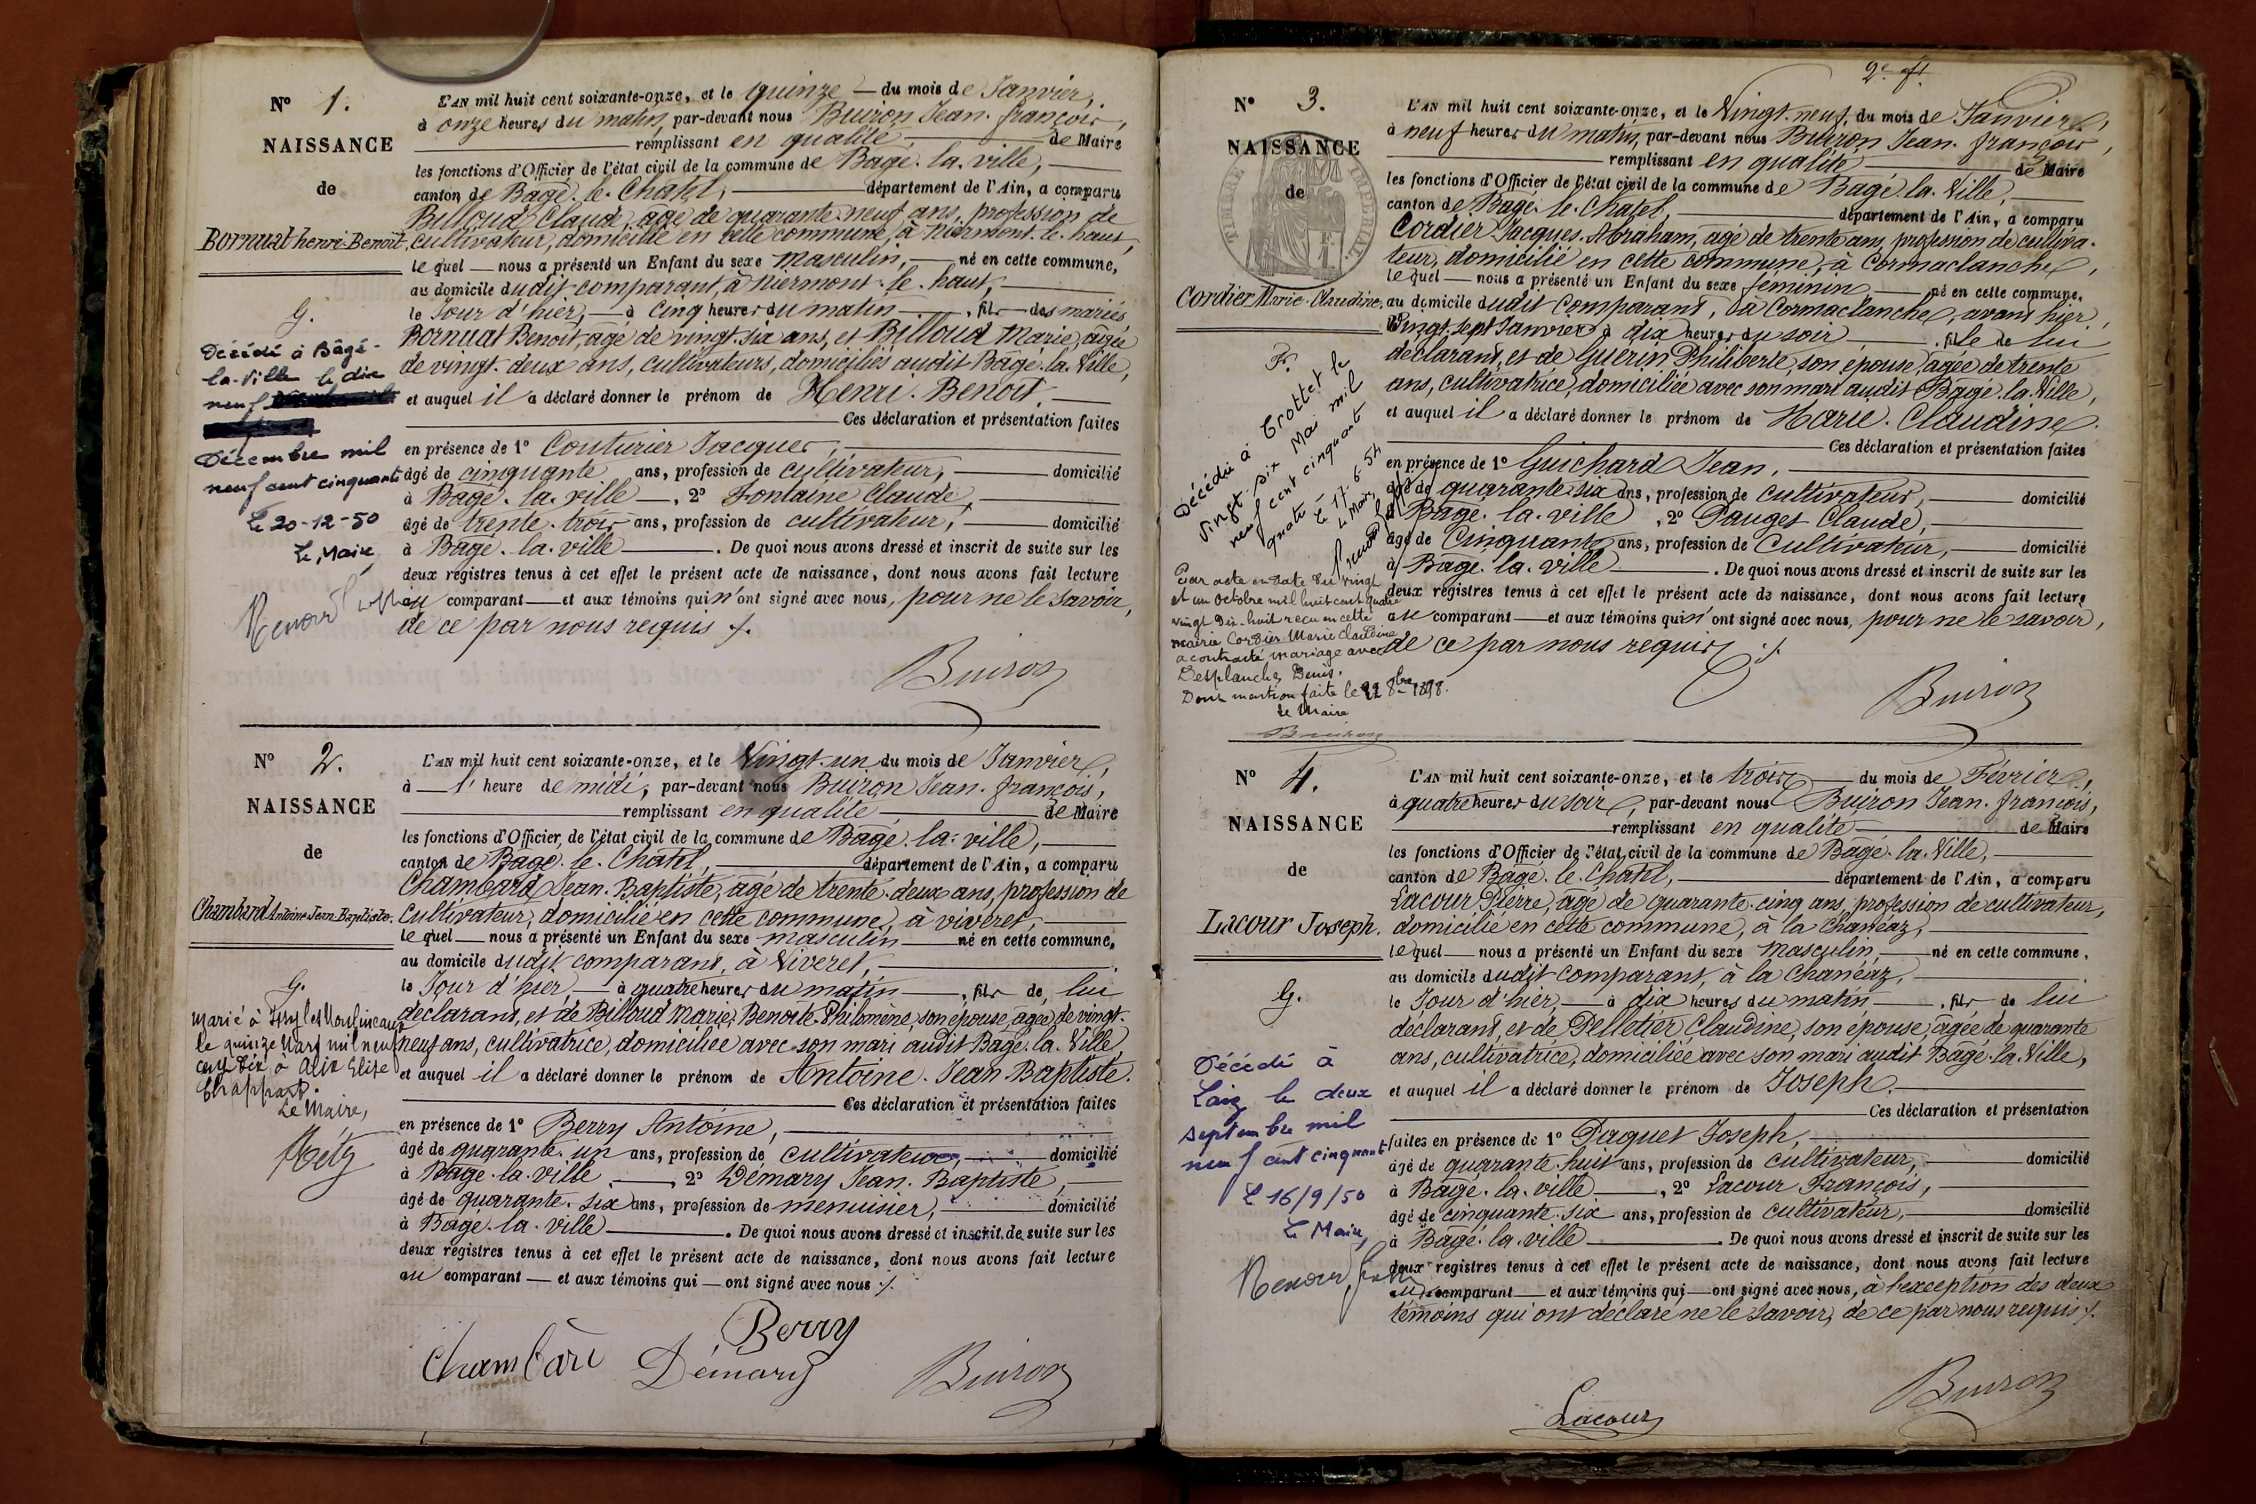 N° 1.
NAISSANCE
de
Bornuat henri-Benoît
G.
Décédé à Bâgé-
la-Ville le dix
neuf
Décembre mil
neuf cent cinquante
Le 20-12-50
Le Maire
L'AN mil huit cent soixante-onze, et le quinze du mois de Janvier,
à onze heures du matin, par-devant nous Buiron Jean-françois,
remplissant en qualité de Maire
les fonctions d'Officier de l'état civil de la commune de Bâgé-la-ville,
canton de Bâgé-le-Châtel, département de l'Ain, a comparu
Billoud Claude, âgé de quarante-neuf ans, profession de
cultivateur, domicilié en cette commune, à niermont-le-haut,
lequel nous a présenté un Enfant du sexe masculin, né en cette commune,
au domicile dudit comparant, à niermont-le-haut,
le Jour d'hier, à cinq heures du matin, fils des mariés
Bornuat Benoît, âgé de vingt-six ans, et Billoud Marie, âgée
de vingt-deux ans, cultivateurs, domiciliés audit Bâgé-la-Ville,
et auquel il a déclaré donner le prénom de Henri-Benoît.
Ces déclaration et présentation faites
en présence de 1° Couturier Jacques,
âgé de cinquante ans, profession de cultivateur, domicilié
à Bâgé-la-ville, 2° Fontaine Claude,
âgé de trente-trois ans, profession de cultivateur, domicilié
à Bâgé-la-ville. De quoi nous avons dressé et inscrit de suite sur les
deux registres tenus à cet effet le présent acte de naissance, dont nous avons fait lecture
au comparant et aux témoins qui n'ont signé avec nous, pour ne le savoir,
de ce par nous requis ./.
Buiron
N° 2.
NAISSANCE
de
Chambard Antoine Jean-Baptiste.
G.
Marié à Issy les Moulineaux
le quinze Mars mil neuf
cent dix à Alix Elise
Chappard.
Le Maire,
Métz
L'AN mil huit cent soixante-onze, et le Vingt-un du mois de Janvier,
à l'heure de midi, par-devant nous Buiron Jean-françois,
remplissant en qualité de Maire
les fonctions d'Officier de l'état civil de la commune de Bâgé-la-ville,
canton de Bâgé-le-Châtel, département de l'Ain, a comparu
Chambard Jean-Baptiste, âgé de trente-deux ans, profession de
Cultivateur, domicilié en cette commune, à viveret,
lequel nous a présenté un Enfant du sexe masculin né en cette commune,
au domicile dudit comparant, à Viveret,
le Jour d'hier, à quatre heures du matin, fils de lui
déclarant, et de Billoud Marie-Benoîte-Philomène, son épouse, âgée de vingt-
neuf ans, cultivatrice, domiciliée avec son mari audit Bâgé-la-Ville
et auquel il a déclaré donner le prénom de Antoine-Jean-Baptiste.
Ces déclaration et présentation faites
en présence de 1° Berry Antoine,
âgé de quarante-un ans, profession de cultivateur, domicilié
à Bâgé-la-ville, 2° Démary Jean-Baptiste,
âgé de quarante-six ans, profession de menuisier, domicilié
à Bâgé-la-ville. De quoi nous avons dressé et inscrit de suite sur les
deux registres tenus à cet effet le présent acte de naissance, dont nous avons fait lecture
au comparant et aux témoins qui ont signé avec nous ./.
Berry
Chambard Démary Buiron
2e. f.
N° 3.
NAISSANCE
de
TIMBRE IMPERIAL
Cordier Marie-Claudine.
F.
Décédée à Crottet le
vingt-six Mai mil
neuf cent cinquante
quatre
Le 17.6.54
Le Maire
Par acte en date du vingt
et un octobre mil huit cent quatre
vingt dix-huit reçu en cette
mairie Cordier Marie Claudine
a contracté mariage avec
Desplanche Denis.
Dont mention faite le 22 8bre 1898.
Le Maire
Buiron
L'AN mil huit cent soixante-onze, et le Vingt-neuf du mois de Janvier,
à neuf heures du matin, par-devant nous Buiron Jean-françois,
remplissant en qualité de Maire
les fonctions d'Officier de l'état civil de la commune de Bâgé-la-Ville,
canton de Bâgé-le-Châtel, département de l'Ain, a comparu
Cordier Jacques-Abraham, âgé de trente ans, profession de cultiva-
teur, domicilié en cette commune, à Cormaclanche,
lequel nous a présenté un Enfant du sexe féminin né en cette commune,
au domicile dudit comparant, à Cormaclanche, avant hier,
Vingt-sept Janvier à dix heures du soir, fille de lui
déclarant, et de Guerin Philiberte, son épouse, âgée de trente
ans, cultivatrice, domiciliée avec son mari audit Bâgé-la-Ville,
et auquel il a déclaré donner le prénom de Marie-Claudine.
Ces déclaration et présentation faites
en présence de 1° Guichard Jean,
âgé de quarante-six ans, profession de cultivateur, domicilié
à Bâgé-la-ville, 2° Dauget Claude,
âgé de Cinquante ans, profession de Cultivateur, domicilié
à Bâgé-la-ville. De quoi nous avons dressé et inscrit de suite sur les
deux registres tenus à cet effet le présent acte de naissance, dont nous avons fait lecture
au comparant et aux témoins qui n'ont signé avec nous, pour ne le savoir,
de ce par nous requis ./.
Buiron
N° 4.
NAISSANCE
de
Lacour Joseph.
G.
Décédé à
Laiz le deux
septembre mil
neuf cent cinquante
Le 16/9/50
Le Maire,
L'AN mil huit cent soixante-onze, et le trois du mois de Février,
à quatre heures du soir, par-devant nous Buiron Jean-françois,
remplissant en qualité de Maire
les fonctions d'Officier de l'état civil de la commune de Bâgé-la-Ville,
canton de Bâgé-le-Châtel, département de l'Ain, a comparu
Lacour Pierre, âgé de quarante-cinq ans, profession de cultivateur,
domicilié en cette commune, à la Chanéaz,
lequel nous a présenté un Enfant du sexe masculin, né en cette commune,
au domicile dudit comparant, à la Chanéaz,
le Jour d'hier, à dix heures du matin, fils de lui
déclarant, et de Pelletier Claudine, son épouse, âgée de quarante
ans, cultivatrice, domiciliée avec son mari audit Bâgé-la-Ville,
et auquel il a déclaré donner le prénom de Joseph.
Ces déclaration et présentation
faites en présence de 1° Paquet Joseph,
âgé de quarante-huit ans, profession de cultivateur, domicilié
à Bâgé-la-ville, 2° Lacour François,
âgé de cinquante-six ans, profession de cultivateur, domicilié
à Bâgé-la-ville. De quoi nous avons dressé et inscrit de suite sur les
deux registres tenus à cet effet le présent acte de naissance, dont nous avons fait lecture
au comparant et aux témoins qui ont signé avec nous, à l'exception des deux
témoins qui ont déclaré ne le savoir, de ce par nous requis ./.
Lacour Buiron